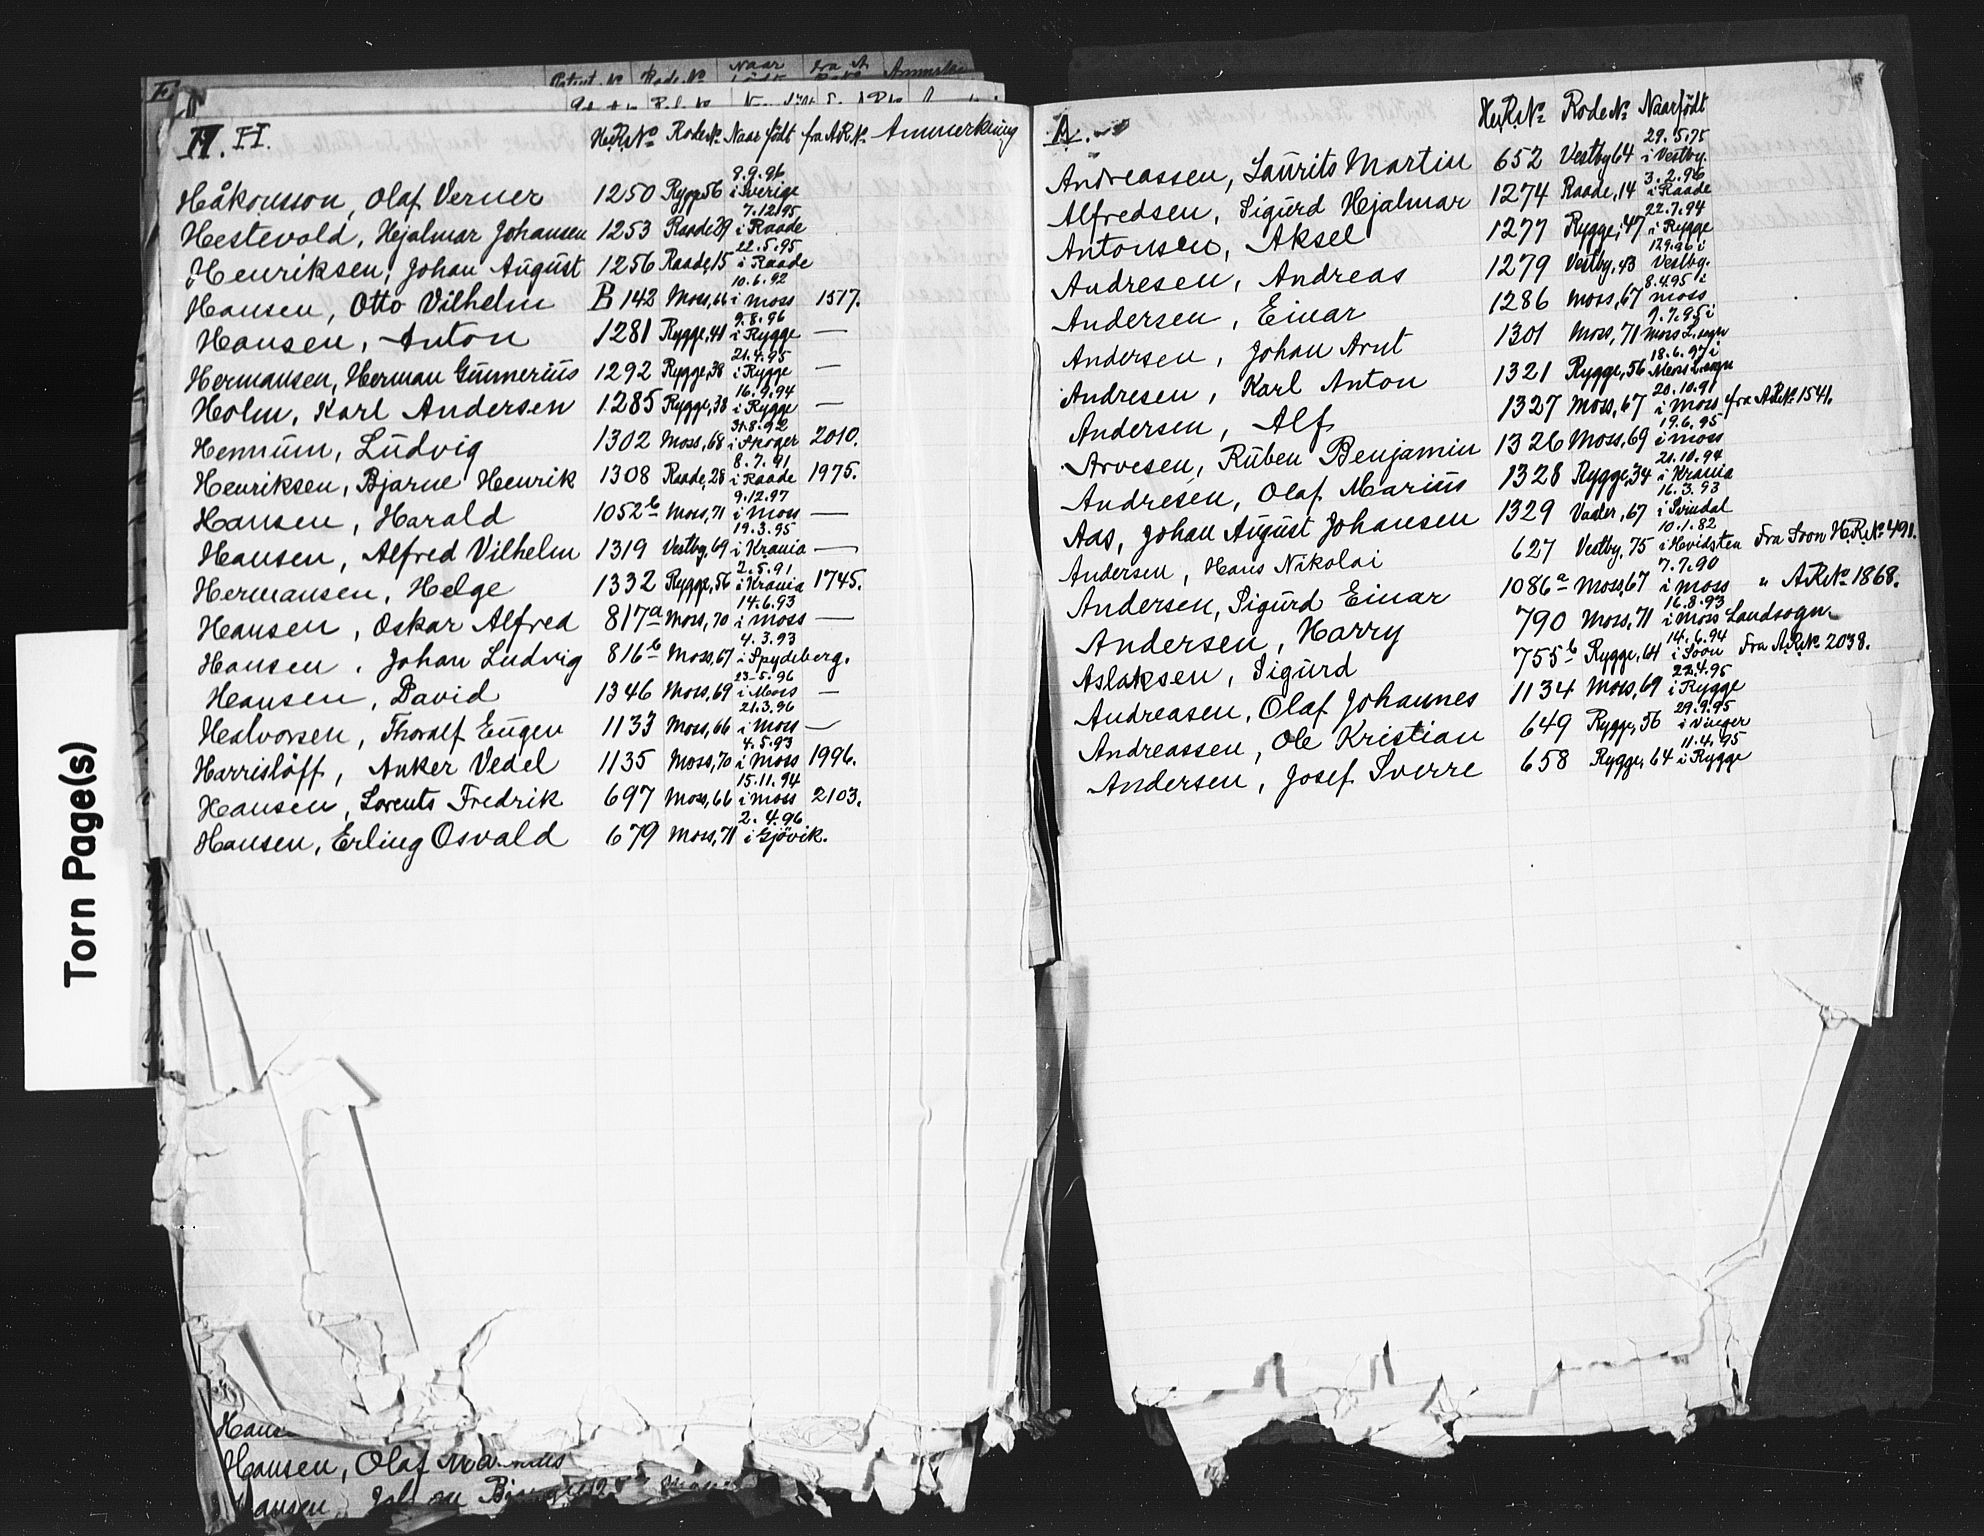 Torn Page(s)
H. H. H.R.№ Rode № Naar født fra A.R.№. Anmerkning
Håkonsson, Olaf Verner 1250 Rygge 56 8.9.96 i Sverige
Hestevold, Hjalmar Johansen 1253 Raade 29 7.12.95 i Raade
Henriksen, Johan August 1256 Raade, 15 22.5.95 i Raade
Hansen, Otto Vilhelm B 142 Moss, 66 10.6.92 i Moss 1517.
Hansen, Anton 1281 Rygge, 41 9.8.96 i Rygge —
Hermansen, Herman Gunnerius 1292 Rygge, 38 21.4.95 i Rygge —
Holm, Karl Andersen 1285 Rygge, 38 16.9.94 i Rygge —
Hennum, Ludvig 1302 Moss, 68 31.8.92 i Skoger 2010.
Henriksen, Bjarne Henrik 1308 Raade, 28 8.7.91 i Raade 1975.
Hansen, Harald 1052 b Moss, 71 9.12.97 i Moss —
Hansen, Alfred Vilhelm 1319 Vestby, 69 19.3.95 i Krania —
Hermansen, Helge 1332 Rygge, 56 2.5.91 i Krania 1745.
Hansen, Oskar Alfred 817 a Moss, 70 14.6.93 i Moss —
Hansen, Johan Ludvig 816 b Moss, 67 4.3.93 i Spydeberg.
Hansen, David 1346 Moss, 69 23.5.96 i Moss —
Halvorsen, Thoralf Eugen 1133 Moss, 66 21.3.96 i Moss —
Harrisløff, Anker Vedel 1135 Moss, 70 4.5.93 i Moss 1996.
Hansen, Lorents Fredrik 697 Moss, 66 15.11.94 i Moss 2103.
Hansen, Erling Osvald 679 Moss, 71 2.4.96 i Gjövik.
Hansen, Olaf
Hansen
A. H.R.№ Rode № Naar født
Andreassen, Laurits Martin 652 Vestby 64 29.5.75 i Vestby.
Alfredsen, Sigurd Hjalmar 1274 Raade, 14 3.2.96 i Raade
Antonsen, Aksel 1277 Rygge, 47 22.7.94 i Rygge
Andresen, Andreas 1279 Vestby, 43 12.9.96 i Vestby.
Andersen, Einar 1286 Moss, 67 8.4.95 i Moss
Andersen, Johan Arnt 1301 Moss, 71 9.7.95 i Moss L.sogn
Andresen, Karl Anton 1321 Rygge, 56 18.6.97 i Moss L.sogn
Andersen, Alf 1327 Moss, 67 20.10.91 i Moss fra A.R.№ 1541.
Arvesen, Ruben Benjamin 1326 Moss, 69 19.6.95 i Moss
Andresen, Olaf Marius 1328 Rygge, 34 21.10.94 i Krania
Aas, Johan August Johansen 1329 Vaaler, 67 16.3.93 i Svindal
Andersen, Hans Nikolai 627 Vestby, 75 10.1.82 i Hvidsten Fra Soon H.R.№ 491.
Andersen, Sigurd Einar 1086 a Moss, 67 7.7.90 i Moss " A.R.№ 1868.
Andersen, Harry 790 Moss, 71 16.8.93 i Moss Landsogn
Aslaksen, Sigurd 755 b Rygge, 64 14.6.94 i Soon Fra A.R.№ 2038.
Andreasen, Olaf Johannes 1134 Moss, 69 22.4.95 i Rygge
Andreassen, Ole Kristian 649 Rygge, 56 29.9.95 i Vinger
Andersen, Josef Sverre 658 Rygge, 64 11.4.95 i Rygge